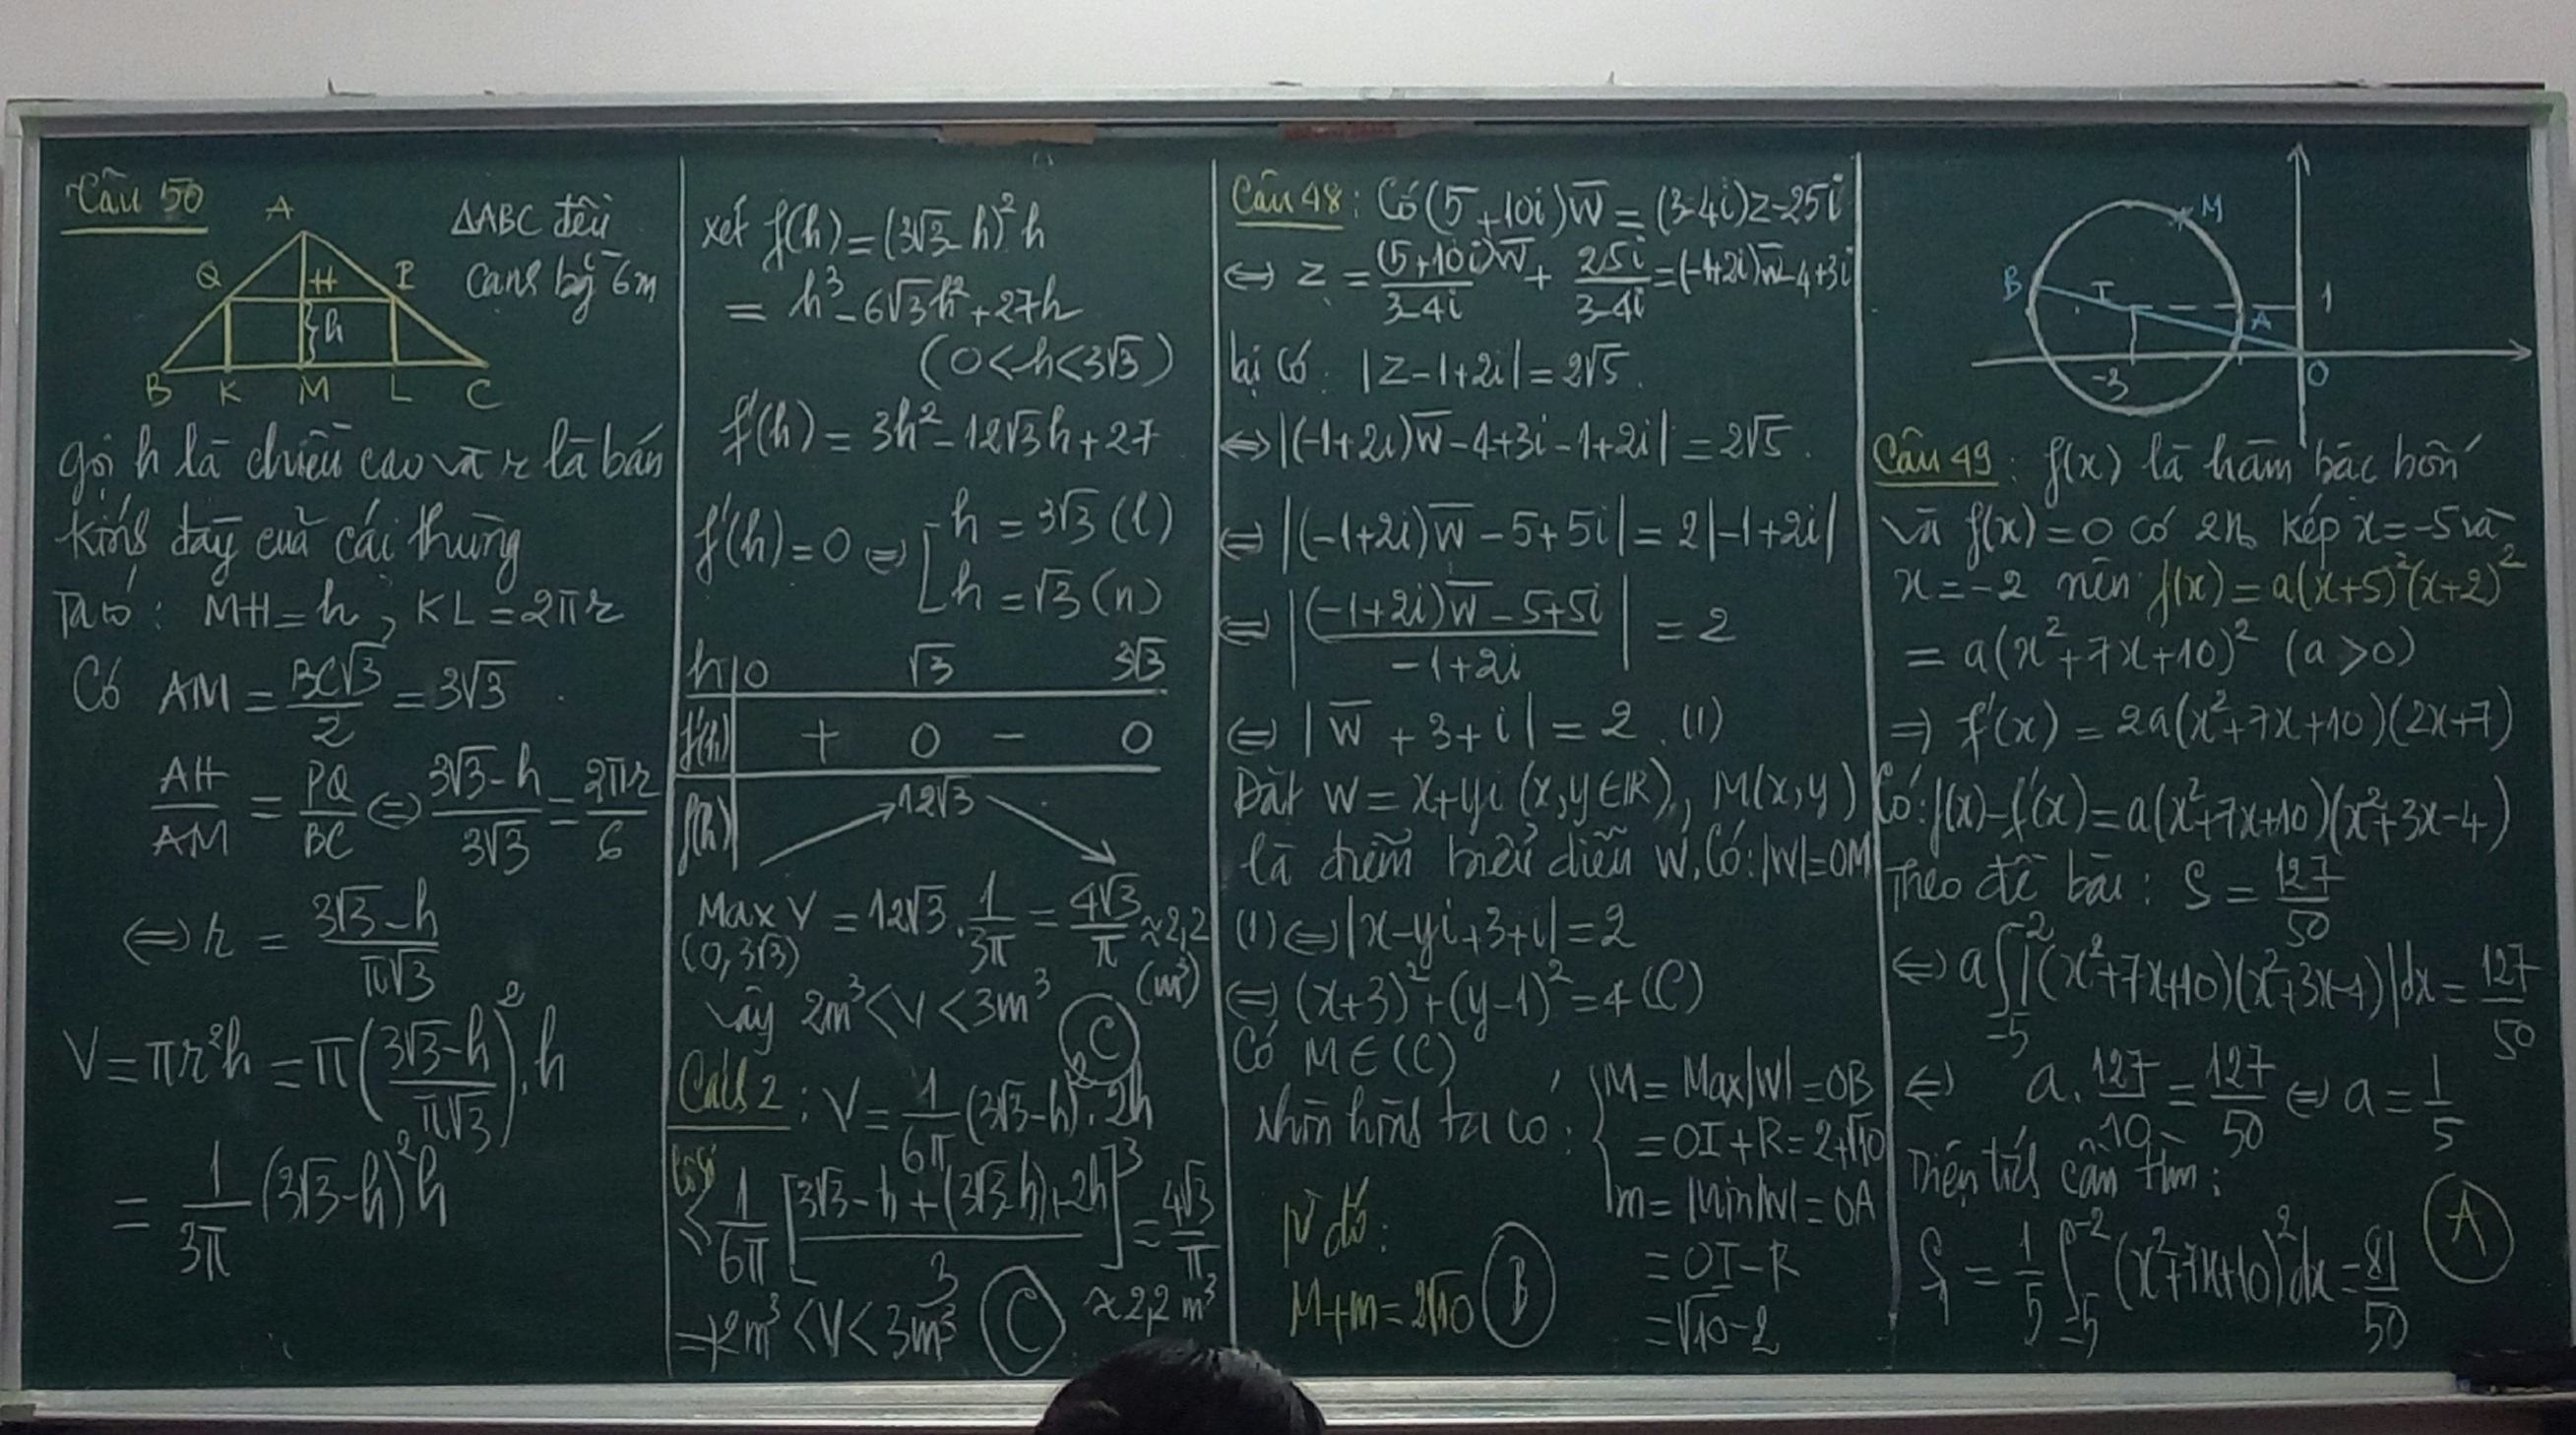 Câu 50
A
ΔABC đều
cạnh bg 6m
Q H P
h
B K M L C
gọi h là chiều cao và r là bán
kính đáy của cái thùng
Ta có : MH = h , KL = 2πr
Có AM = BC√3/2 = 3√3
AH/AM = PQ/BC ⇔ (3√3-h)/(3√3) = 2πr/6
⇔ r = (3√3-h)/(π√3)
V = πr²h = π((3√3-h)/(π√3))².h
= 1/(3π) (3√3-h)²h
xét f(h) = (3√3-h)²h
= h³-6√3h²+27h
(0<h<3√3)
f'(h) = 3h²-12√3h+27
f'(h) = 0 ⇔ [ h = 3√3 (l)
h = √3 (n)
h 0 √3 3√3
f'(h) + 0 - 0
f(h) 12√3
Max V = 12√3 . 1/(3π) = 4√3/π ≈ 2,2
(0, 3√3) (m³)
Vậy 2m³ < V < 3m³ C
Cách 2 : V = 1/(6π) (3√3-h)². 2h
Cô si
≤ 1/(6π) [(3√3-h+(3√3-h)+2h)/3]³ = 4√3/π
⇒ 2m³ < V < 3m³ C ≈ 2,2 m³
Câu 48 : Có (5+10i)w̅ = (3-4i)z-25i
⇔ z = (5+10i)w̅/(3-4i) + 25i/(3-4i) = (-1+2i)w̅-4+3i
lại có : |z-1+2i| = 2√5.
⇔ |(-1+2i)w̅-4+3i-1+2i| = 2√5.
⇔ |(-1+2i)w̅-5+5i| = 2|-1+2i|
⇔ |((-1+2i)w̅-5+5i)/(-1+2i)| = 2
⇔ |w̅+3+i| = 2 . (1)
Đặt w = x+yi (x,y∈ℝ), M(x,y)
là điểm biểu diễn w. Có: |w|=OM
(1) ⇔ |x-yi+3+i| = 2
⇔ (x+3)²+(y-1)² = 4 (C)
Có M∈(C)
Nhìn hình ta có : { M = Max|w| = OB
= OI+R = 2+√10
m = Min|w| = OA
= OI-R
= √10-2
Từ đó:
M+m = 2√10 B
M
B I A 1
-3 O
Câu 49 : f(x) là hàm bậc bốn
và f(x) = 0 có 2n₀ kép x = -5 và
x = -2 nên f(x) = a(x+5)²(x+2)²
= a(x²+7x+10)² (a>0)
⇒ f'(x) = 2a(x²+7x+10)(2x+7)
Có: f(x)-f'(x) = a(x²+7x+10)(x²+3x-4)
Theo đề bài : S = 127/50
⇔ a∫₋₅⁻² |(x²+7x+10)(x²+3x-4)|dx = 127/50
⇔ a. 127/10 = 127/50 ⇔ a = 1/5
Diện tích cần tìm :
S₁ = 1/5 ∫₋₅⁻² (x²+7x+10)²dx = 81/50 A